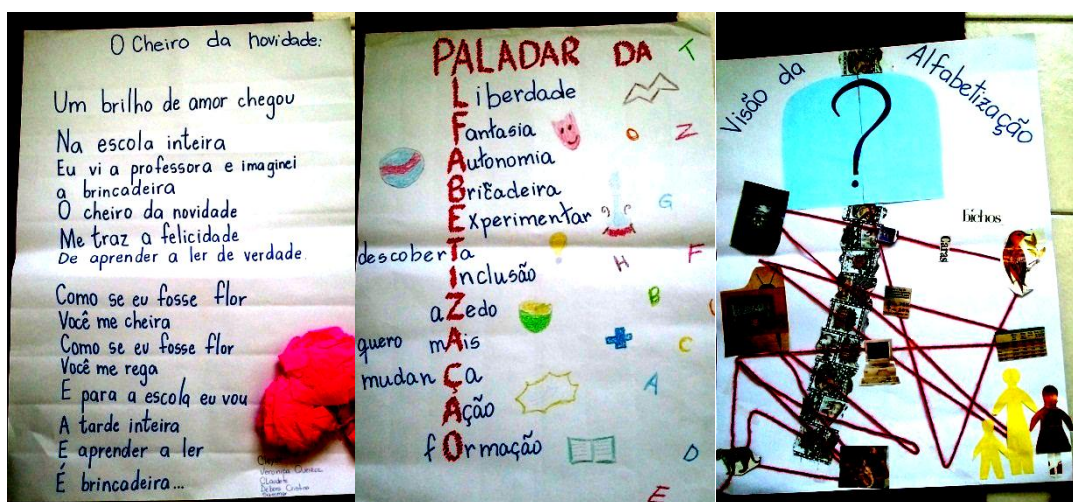 O Cheiro da novidade:
Um brilho de amor chegou
Na escola inteira
Eu vi a professora e imaginei
a brincadeira
O cheiro da novidade
Me traz a felicidade
De aprender a ler de verdade.
Como se eu fosse flor
Você me cheira
Como se eu fosse flor
Você me rega
E para a escola eu vou
A tarde inteira
E aprender a ler
É brincadeira...
PALADAR DA
Liberdade
Fantasia
Autonomia
Bricadeira
Experimentar
descoberta
Inclusão
aZedo
quero mAis
mudanÇa
Ação
fOrmação
T
O Z
G
H F
B
C
A
D
E
Visão da Alfabetização
?
bichos
Caras